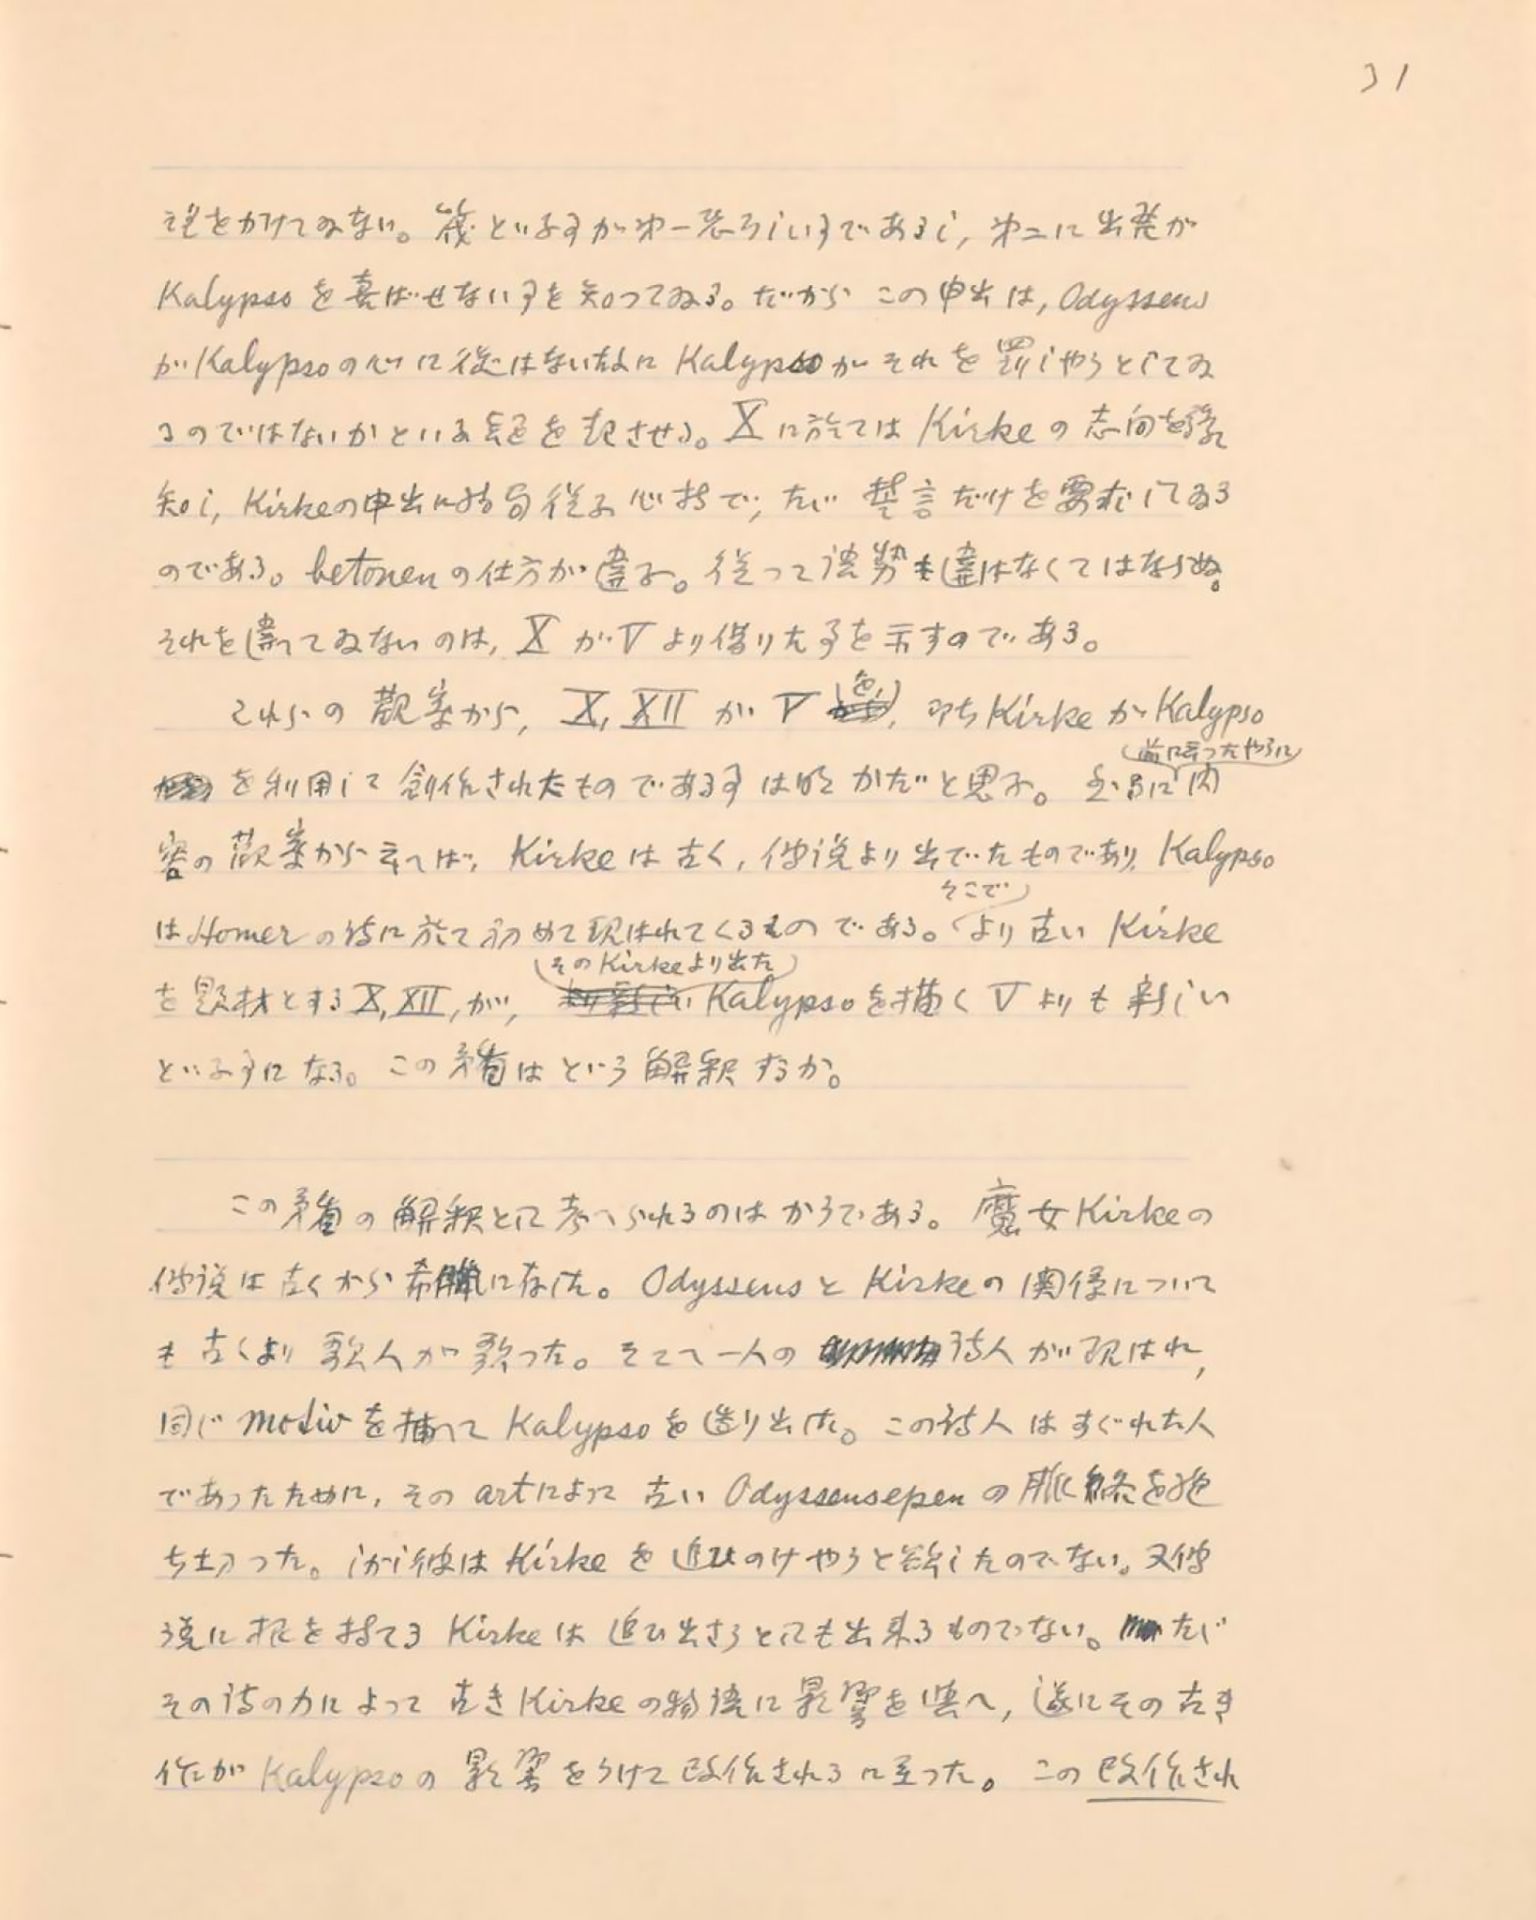 31
望をかけてゐない。筏といふ事が第一恐ろしい事であるし, 第二に出発が
Kalypsoを喜ばせない事を知ってゐる。だから この申出は, Odysseus
がKalypsoの心に従はない故に Kalypsoがそれを罰しやうとしてゐ
るのではないかといふ疑を起させる。Xに於ては Kirkeの志向を
知し, Kirkeの申出に 従ふ心持で, たゞ 誓言だけを要求してゐる
のである。betonenの仕方が違ふ。従って語勢も違はなくてはならぬ。
それを違ってゐないのは, XがVより借りた事を示すのである。
これらの観察から, X, XIIが V(色), 即ちKirkeがKalypso
を利用して創作されたものである事は明かだと思ふ。 (前に言ったやうに) 内
容の観察から云へば, Kirkeは古く, 伝説より出でたものであり, Kalypso
はHomerの詩に於て初めて現はれてくるものである。(そこで) より古いKirke
を題材とするX, XII, が, (そのKirkeより出た) Kalypsoを描くVよりも新しい
といふ事になる。この矛盾はどいう解釈するか。
この矛盾の解釈として考へられるのはかうである。魔女Kirkeの
伝説は古くから希臘に存した。OdysseusとKirkeの関係について
も古くより歌人が歌った。そこへ一人の詩人が現はれ,
同じmotivを捕へてKalypsoを造り出した。この詩人はすぐれた人
であったために, そのartによって古いOdysseusepenの脈絡を絶
ち切った。しかし彼はKirkeを追ひのけやうと欲したのでない。又伝
説に根を持てるKirkeは追ひ出さうとしても出来るものでない。たゞ
その詩の力によって古きKirkeの物語に影響を与へ, 遂にその古き
作がKalypsoの影響をうけて改作されるに至った。この改作され